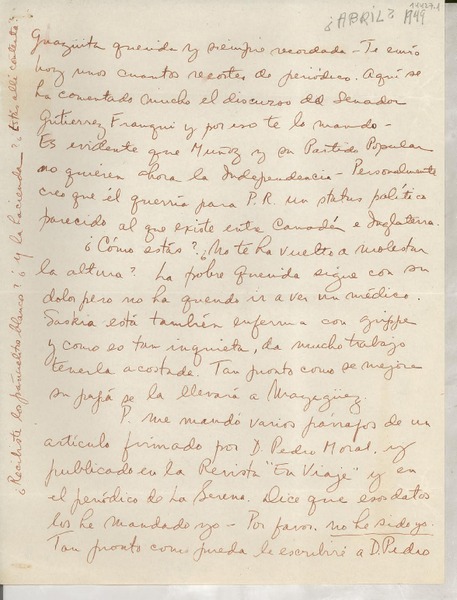 ¿ABRIL? 1949
Guagüita querida y siempre recordada - Te envío
hoy unos cuantos recortes de periódico. Aquí se
ha comentado mucho el discurso del Senador
Gutierrez Franqui y por eso te lo mando -
Es evidente que Muñoz y su Partido Popular
no quieren ahora la Independencia - Personalmente
creo que él querría para P.R. un status político
parecido al que existe entre Canadá e Inglaterra.
¿Cómo estás? ¿No te ha vuelto a molestar
la altura? La pobre Querida sigue con su
dolor pero no ha querido ir a ver un médico.
Saskia está también enferma con grippe
y como es tan inquieta, da mucho trabajo
tenerla acostada. Tan pronto como se mejore
su papá se la llevará a Mayagüez.
P. me mandó varios párrafos de un
artículo firmado por D. Pedro Moral, y
publicado en la Revista "En Viaje" y en
el periódico de La Serena. Dice que esos datos
los he mandado yo - Por favor, no he sido yo.
Tan pronto como pueda le escribiré a D. Pedro
¿Recibiste los pañuelitos blancos? ¿Y la hacienda? ¿Estás allí contenta?